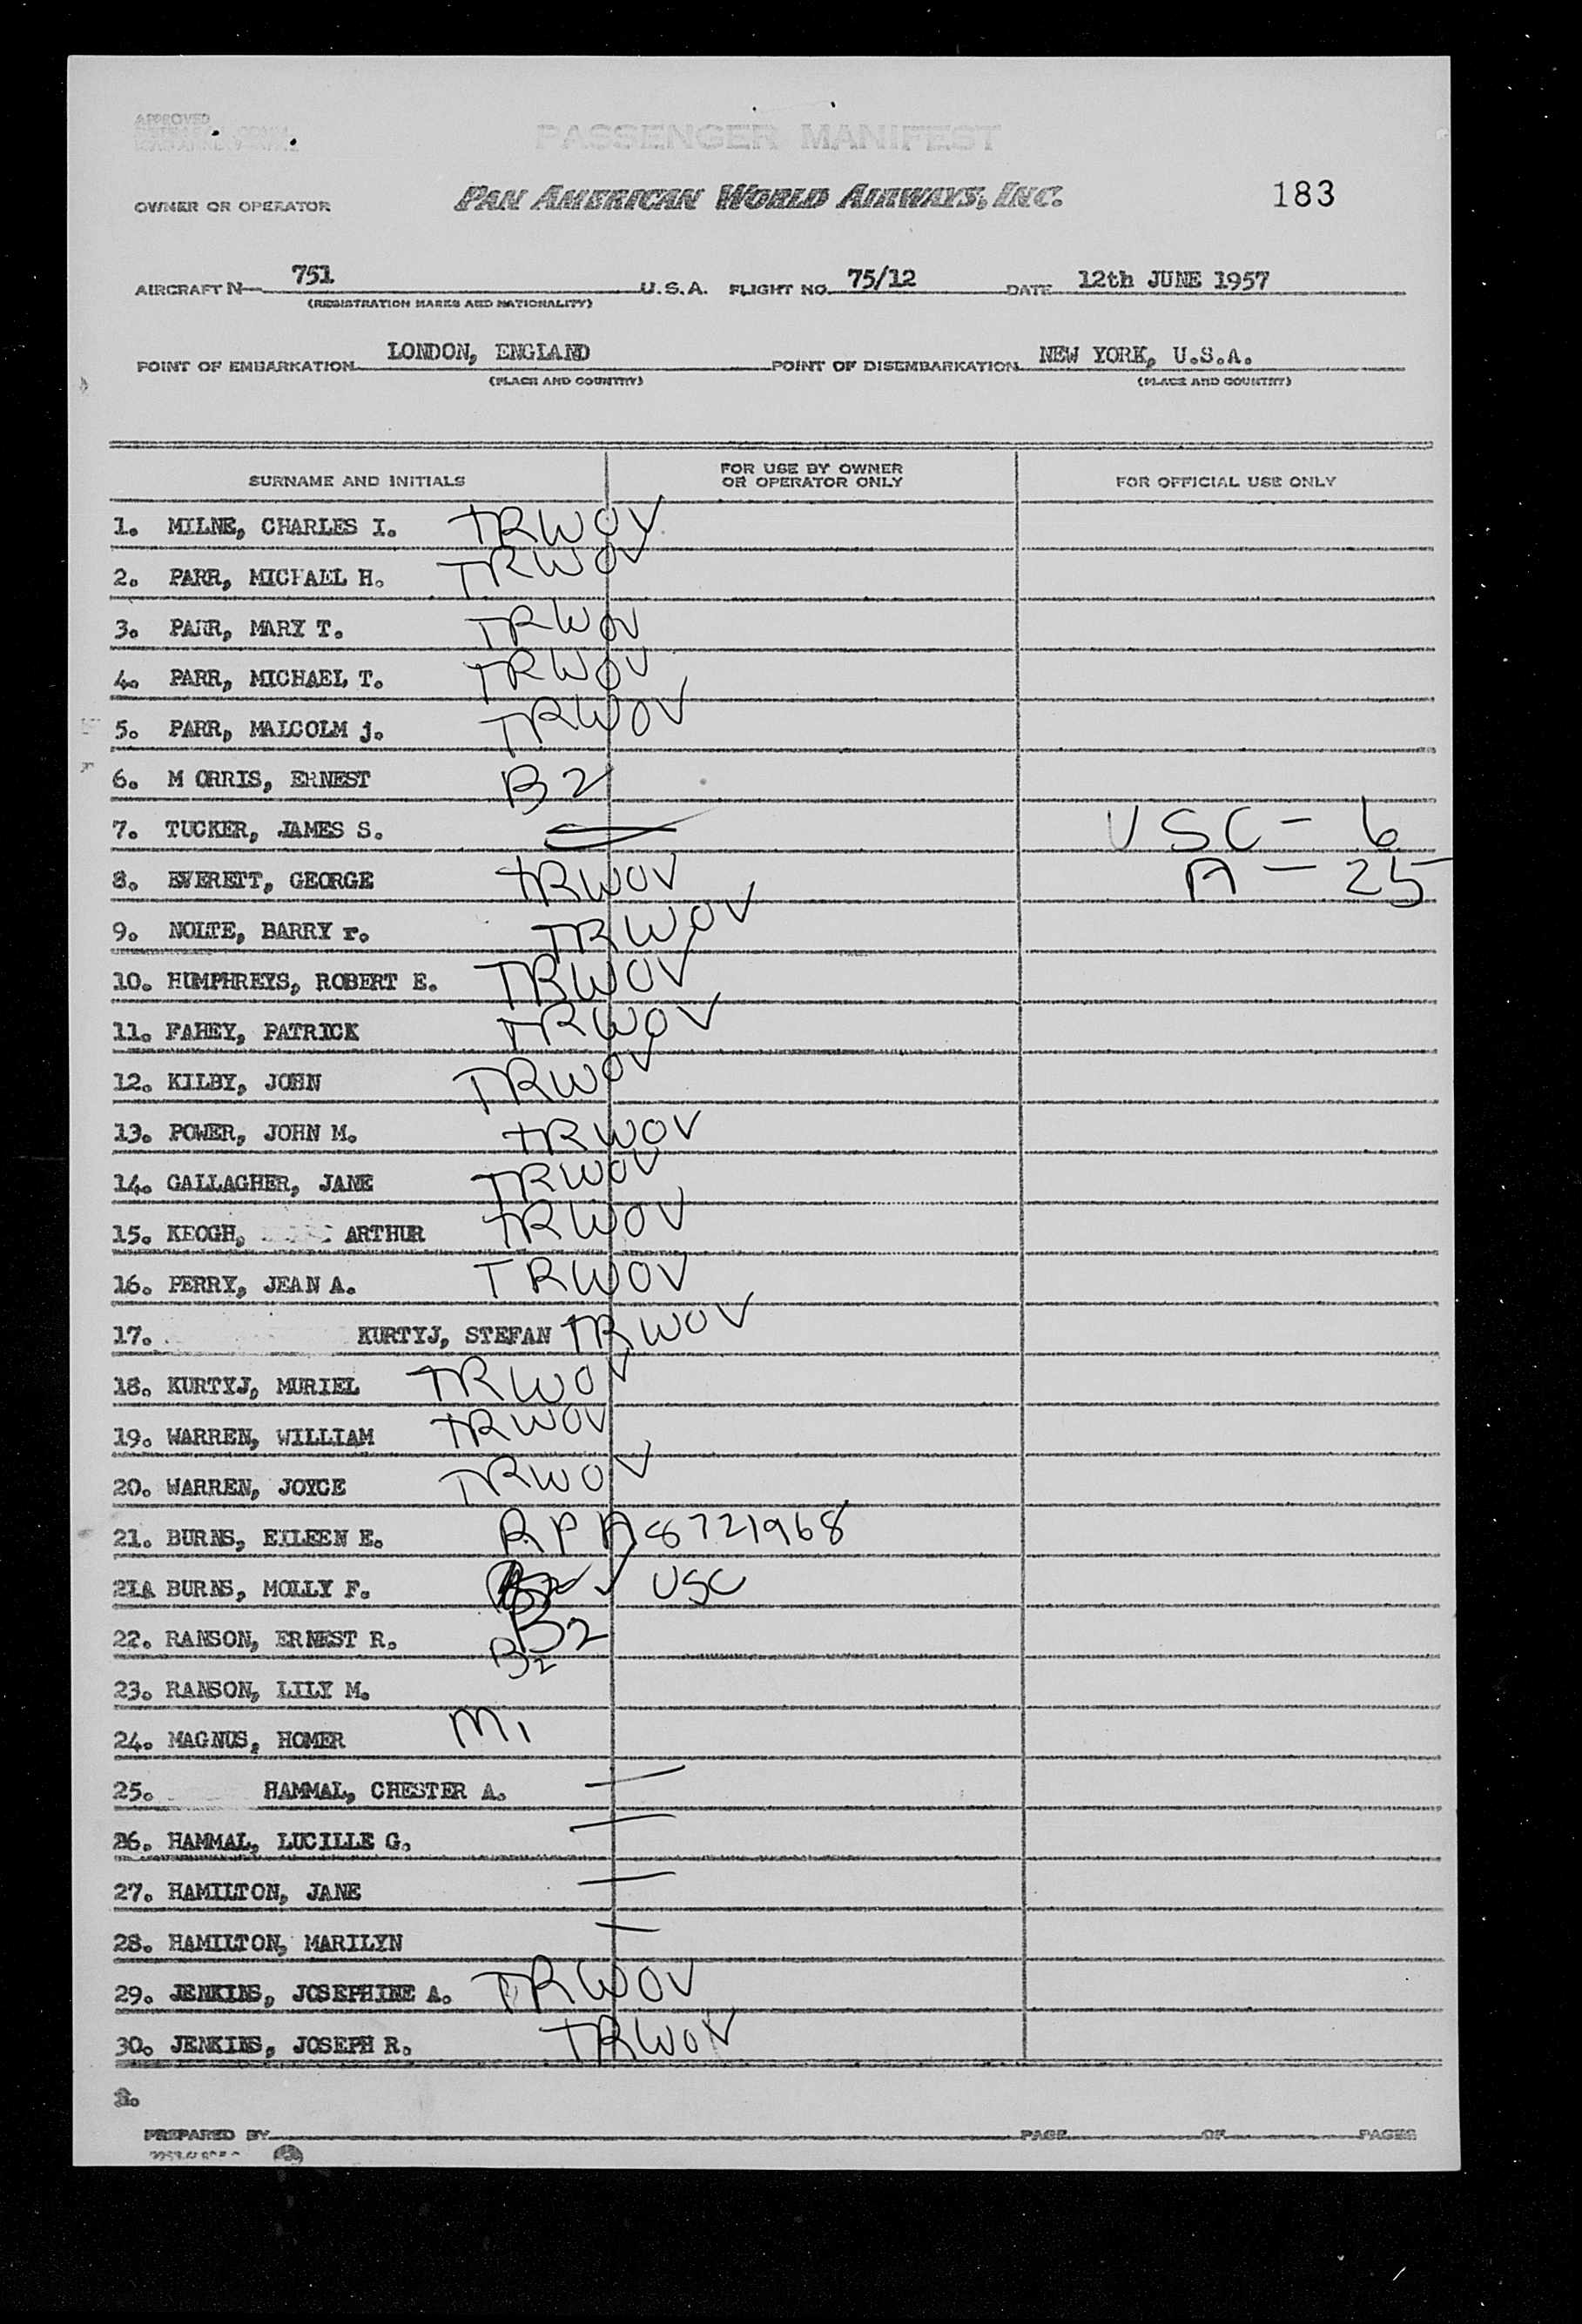 APPROVED
PASSENGER MANIFEST
OWNER OR OPERATOR PAN AMERICAN WORLD AIRWAYS, INC. 183
AIRCRAFT N 751 U.S.A. FLIGHT NO. 75/12 DATE 12th JUNE 1957
(REGISTRATION MARKS AND NATIONALITY)
POINT OF EMBARKATION LONDON, ENGLAND POINT OF DISEMBARKATION NEW YORK, U.S.A.
(PLACE AND COUNTRY) (PLACE AND COUNTRY)
SURNAME AND INITIALS FOR USE BY OWNER OR OPERATOR ONLY FOR OFFICIAL USE ONLY
1. MILNE, CHARLES I. TRWOV
2. PARR, MICHAEL H. TRWOV
3. PARR, MARY T. TRWOV
4. PARR, MICHAEL T. TRWOV
5. PARR, MALCOLM j. TRWOV
6. M ORRIS, ERNEST B2
7. TUCKER, JAMES S. USC - 6
8. EVERETT, GEORGE TRWOV A - 25
9. NOLTE, BARRY r. TRWOV
10. HUMPHREYS, ROBERT E. TRWOV
11. FAHEY, PATRICK TRWOV
12. KILBY, JOHN TRWOV
13. POWER, JOHN M. TRWOV
14. GALLAGHER, JANE TRWOV
15. KEOGH, ARTHUR TRWOV
16. PERRY, JEAN A. TRWOV
17. KURTYJ, STEFAN TRWOV
18. KURTYJ, MURIEL TRWOV
19. WARREN, WILLIAM TRWOV
20. WARREN, JOYCE TRWOV
21. BURNS, EILEEN E. RPA 8721968
21A BURNS, MOLLY F. USC
22. RANSON, ERNEST R. B2
B2
23. RANSON, LILY M.
24. MAGNUS, HOMER M1
25. HAMMAL, CHESTER A.
26. HAMMAL, LUCILLE G.
27. HAMILTON, JANE
28. HAMILTON, MARILYN
29. JENKINS, JOSEPHINE A. TRWOV
30. JENKINS, JOSEPH R. TRWOV
PREPARED BY PAGE OF PAGES